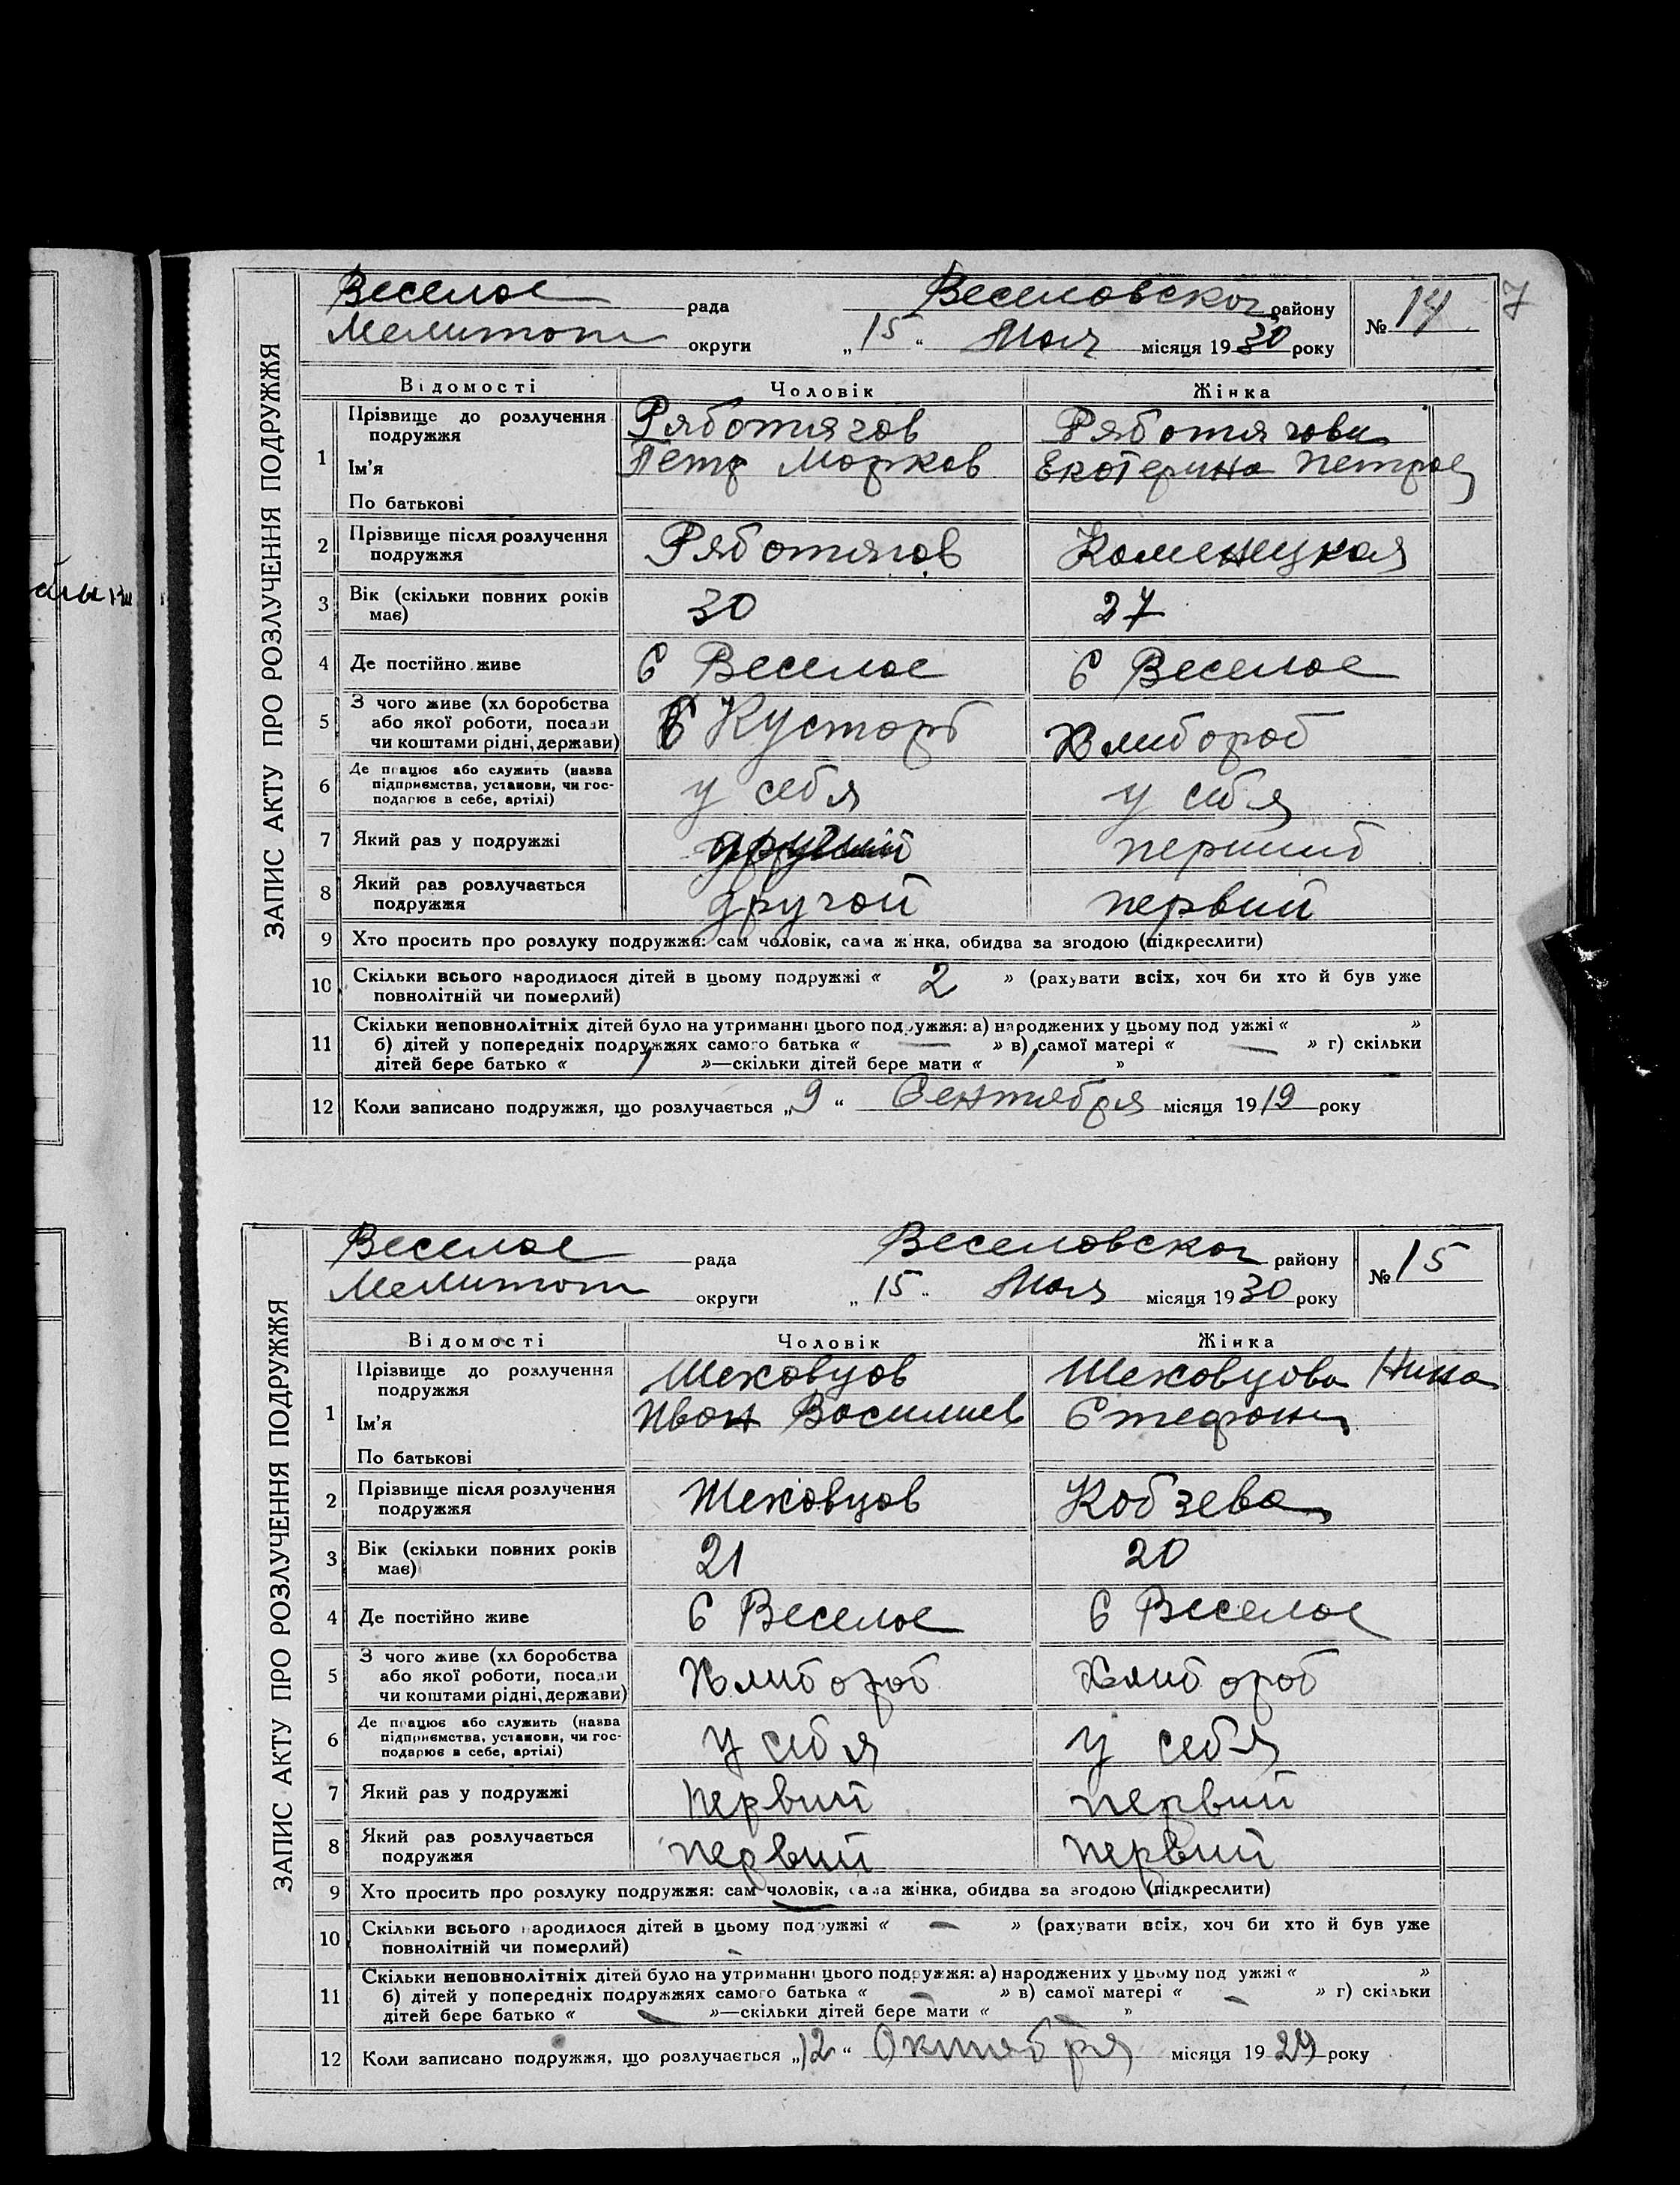 7
ЗАПИС АКТУ ПРО РОЗЛУЧЕННЯ ПОДРУЖЖЯ
Веселое рада Веселовског району № 14
Мелитоп округи „15“ Мая місяця 1930 року
Відомості Чоловік Жінка
1 Прізвище до розлучення подружжя Ряботягов Ряботягова
Ім'я Петр Марков Екатерина Петров
По батькові
2 Прізвище після розлучення подружжя Ряботягов Каменецкая
3 Вік (скільки повних років має) 30 27
4 Де постійно живе С Веселое С Веселое
5 З чого живе (хліборобства або якої роботи, посади чи коштами рідні, держави) Кустарь Хлибороб
6 Де працює або служить (назва підприємства, установи, чи господарює в себе, артілі) у себя у себя
7 Який раз у подружжі другий перший
8 Який раз розлучається подружжя другой первий
9 Хто просить про розлуку подружжя: сам чоловік, сама жінка, обидва за згодою (підкреслити)
10 Скільки всього народилося дітей в цьому подружжі « 2 » (рахувати всіх, хоч би хто й був уже повнолітній чи померлий)
11 Скільки неповнолітніх дітей було на утриманні цього подружжя: а) народжених у цьому подружжі « »
б) дітей у попередніх подружжях самого батька « — » в) самої матері « — » г) скільки
дітей бере батько « 1 »—скільки дітей бере мати « 1 »
12 Коли записано подружжя, що розлучається „9“ Сентября місяця 1919 року
ЗАПИС АКТУ ПРО РОЗЛУЧЕННЯ ПОДРУЖЖЯ
Веселое рада Веселовског району № 15
Мелитоп округи „15“ Мая місяця 1930 року
Відомості Чоловік Жінка
1 Прізвище до розлучення подружжя Шеховцов Шеховцова Нина
Ім'я Иван Василиев Стефан
По батькові
2 Прізвище після розлучення подружжя Шеховцов Кобзева
3 Вік (скільки повних років має) 21 20
4 Де постійно живе С Веселое С Веселое
5 З чого живе (хліборобства або якої роботи, посади чи коштами рідні, держави) Хлибороб Хлибороб
6 Де працює або служить (назва підприємства, установи, чи господарює в себе, артілі) у себя у себя
7 Який раз у подружжі первий первий
8 Який раз розлучається подружжя первий первий
9 Хто просить про розлуку подружжя: сам чоловік, сама жінка, обидва за згодою (підкреслити)
10 Скільки всього народилося дітей в цьому подружжі « — » (рахувати всіх, хоч би хто й був уже повнолітній чи померлий)
11 Скільки неповнолітніх дітей було на утриманні цього подружжя: а) народжених у цьому подружжі « »
б) дітей у попередніх подружжях самого батька « — » в) самої матері « — » г) скільки
дітей бере батько « — »—скільки дітей бере мати « »
12 Коли записано подружжя, що розлучається „12“ Октября місяця 1929 року